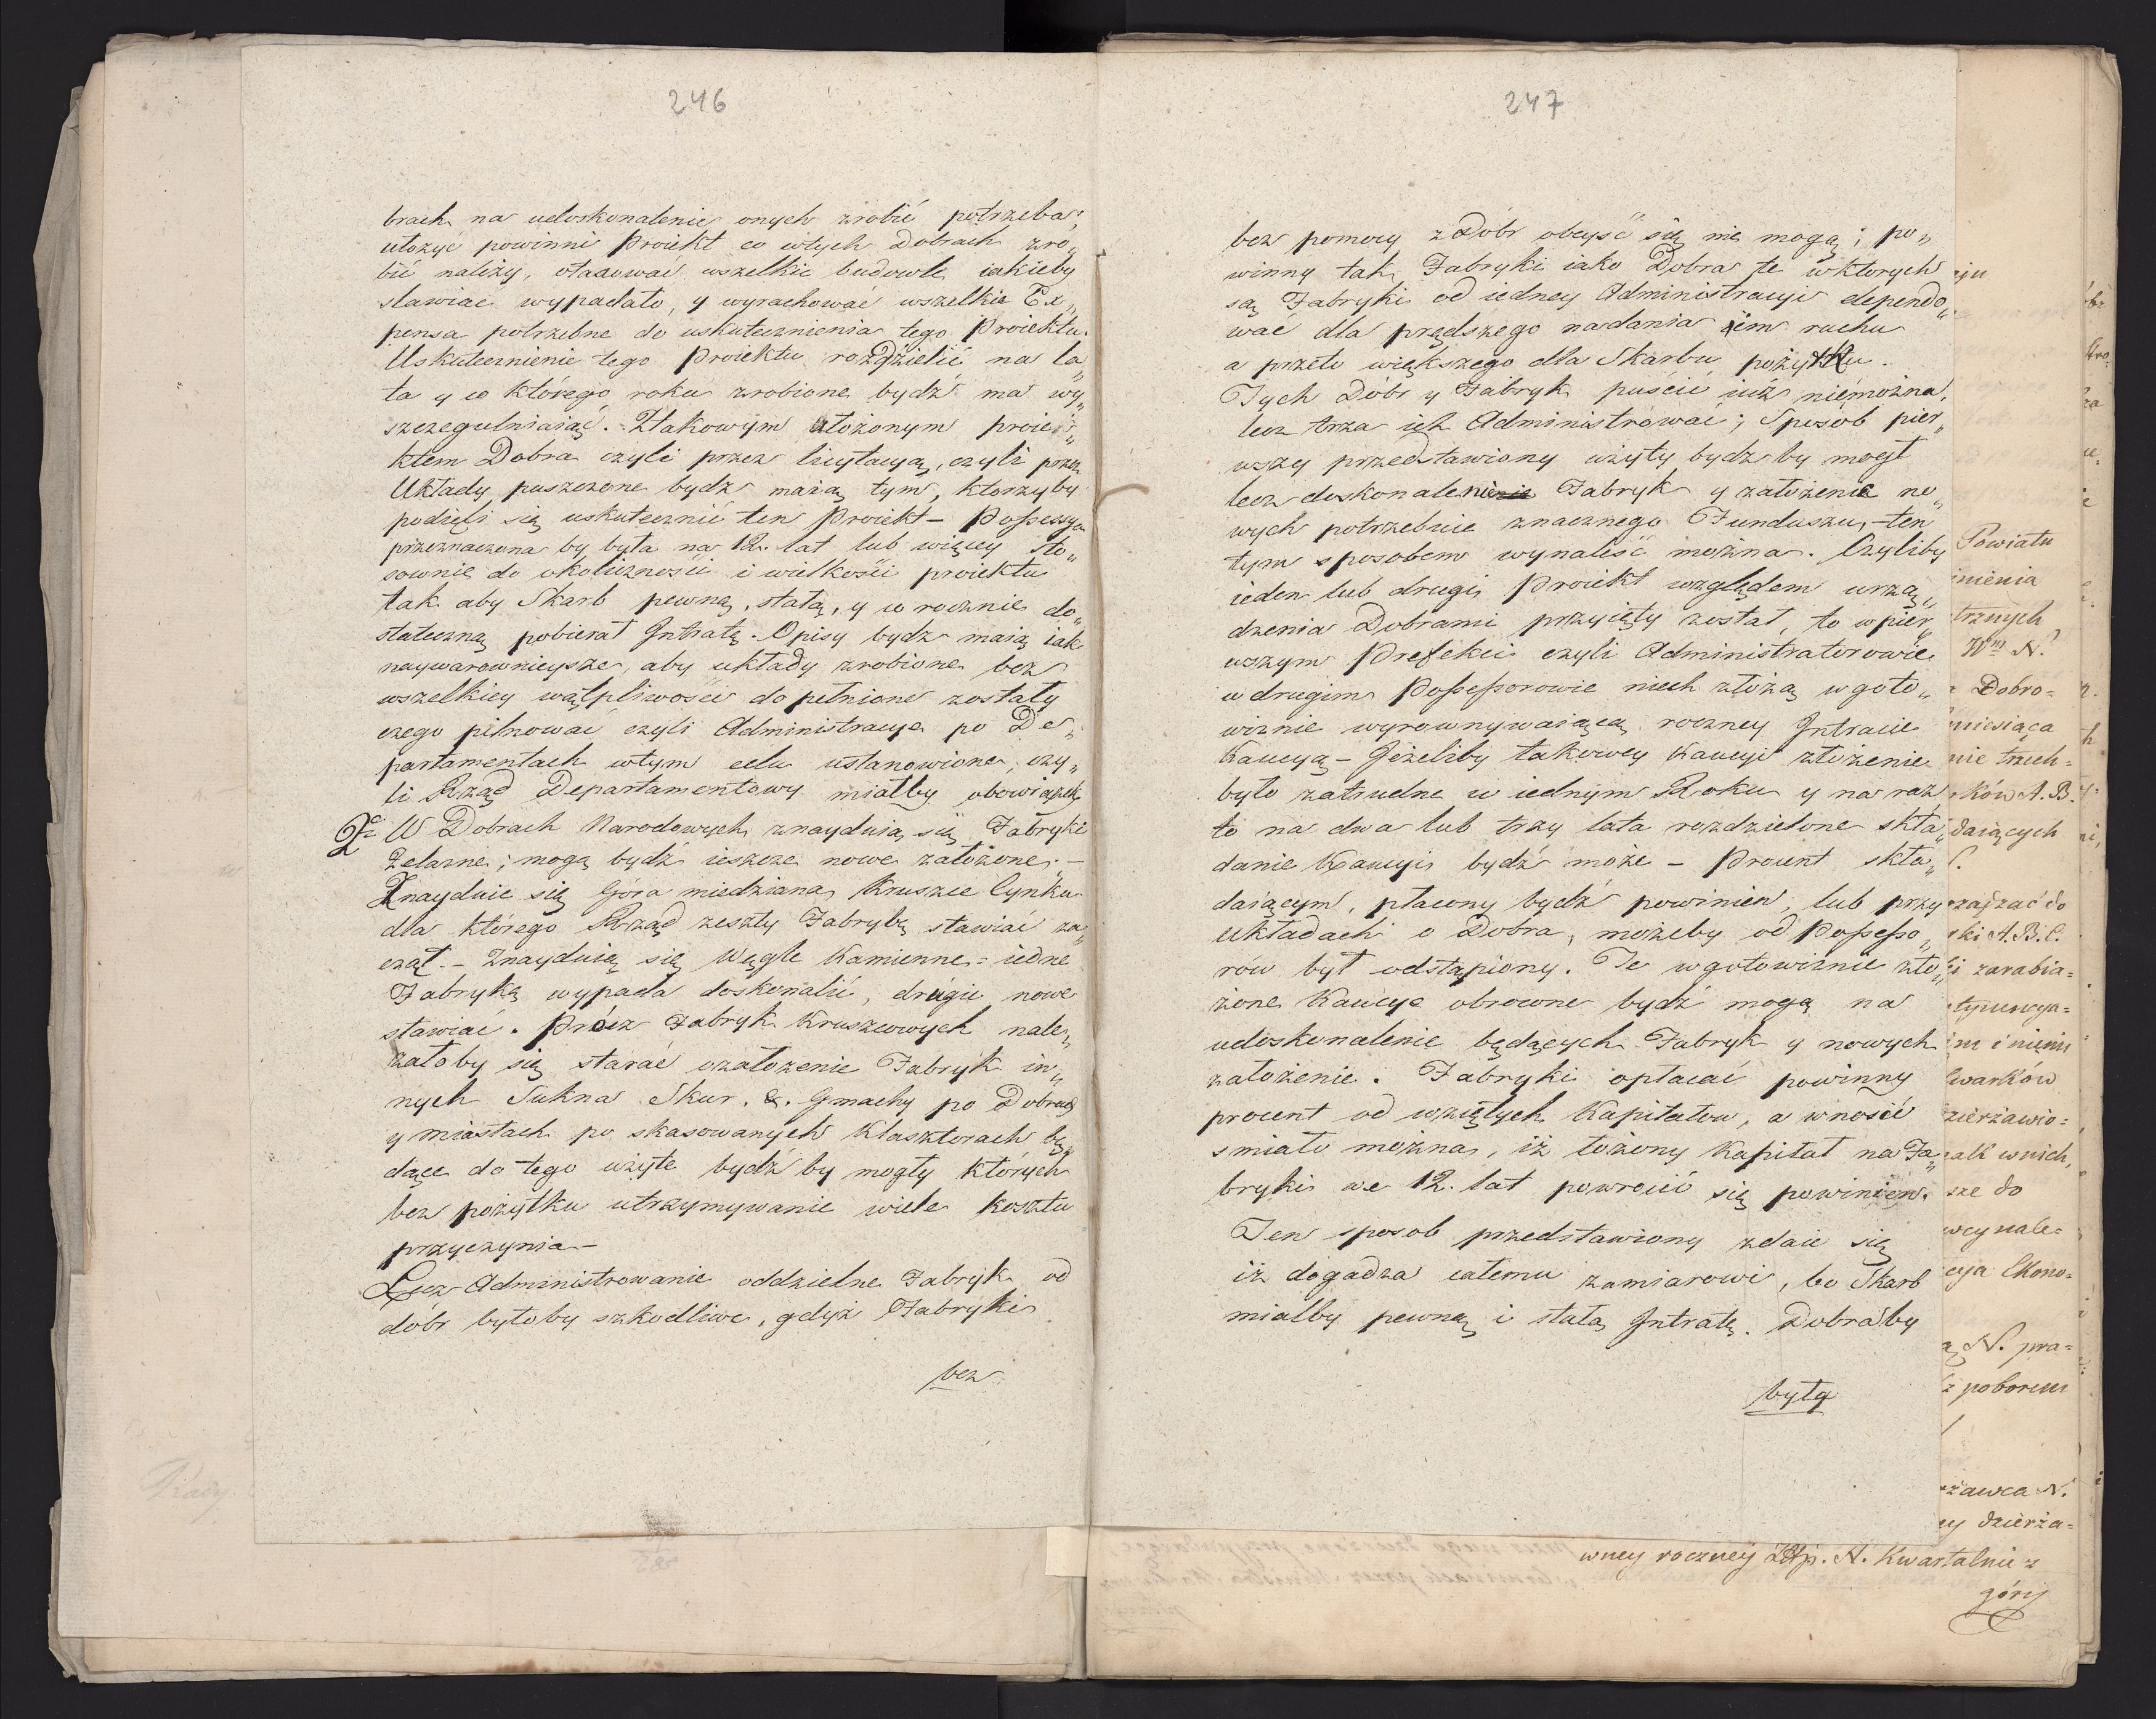 246
brach na udoskonalenie onych zrobić potrzeba;
ułożyć powinni Proiekt co wtych Dobrach zro„
bić należy, otaxować wszelkie budowle iakieby
stawiać wypadało, y wyrachować wszelkie Ex„
pensa potrzebne do uskutecznienia tego Proiektu.
Uskutecznienie tego Proiektu rozdzielić na la„
ta y co którego roku zrobione bydź ma wy„
szczegulniaiąć. Ztakowym ułożonym proie„
ktem Dobra czyli przez licytacyą, czyli przez
Układy puszczone bydź maią tym, ktorzyby
podięli się uskutecznić ten Proiekt – Possessya
przeznaczona by była na 12. lat lub więcey sto„
sownie do okoliczności i wielkości proiektu
tak aby Skarb pewną, stałą, y w rocznie do„
stateczną pobierał Intratę. Opisy bydź maią iak
naywarownieysze, aby układy zrobione bez
wszelkiey wątpliwości dopełnione zostały
czego pilnować czyli Administracye po De„
partamentach wtym celu ustanowione, czy„
li Rząd Departamentowy miałby obowiązek
2e W Dobrach Narodowych znayduią się Fabryki
Żelazne; mogą bydź ieszcze nowe założone. –
Znayduie się Góra miedziana, Kruszce Cynku
dla którego Rząd zeszły Fabrykę stawiać za„
czął. – Znayduią się Węgle Kamienne = iedne
Fabryką wypada doskonalić, drugie nowe
stawiać. Prócz Fabryk Kruszcowych nale„
żałoby się starać ozałożenie Fabryk in„
nych Sukna Skur. &. Gmachy po Dobrach
y miastach po skasowanych Klasztorach bę„
dące do tego użyte bydź by mogły których
bez pożytku utrzymywanie wiele kosztu
przyczynia –
Lecz Administrowanie oddzielne Fabryk od
dóbr byłoby szkodliwe, gdyż Fabryki
bez
247
bez pomocy z Dóbr obeyść się nie mogą; po„
winny tak Fabryki iako Dobra te wktorych
są Fabryki od iedney Administracyi dependo„
wać dla prędszego nadania im ruchu
a przeto większego dla Skarbu pożytku.
Tych Dóbr y Fabryk puścić iuż niemożna,
lecz trza ich Administrować; Sposób pier„
wszy przedstawiony użyty bydź by mogł
lecz doskonalenie Fabryk y założenie no„
wych potrzebuie znacznego Funduszu, – ten
tym sposobem wynaleść można. Czyliby
ieden lub drugi Proiekt względem urzą„
dzenia Dobrami przyięty został, to wpier„
wszym Prefekci czyli Administratorowie
w drugim Possessorowie niech złożą wgoto„
wiznie wyrownywaiącą roczney Intracie
Kaucyą – Jeżeliby takowey Kaucyi złożenie
było zatrudne w iednym Roku y na raz
to na dwa lub trzy lata rozdzielone skła„
danie Kaucyi bydź może – Procent skła„
daiącym, płacony bydź powinien, lub przy
układach o Dobra, możeby od Possesso„
rów był odstąpiony. Te wgotowiznie zło„
żone Kaucye obrocone bydź mogą na
udoskonalenie będących Fabryk y nowych
założenie. Fabryki opłacać powinny
procent od wziętych Kapitałow, a wnosić
smiało można, iż łożony Kapitał na Fa„
bryki we 12. lat powrocić się powinien.
Ten sposob przedstawiony zdaie się
iż dogadza całemu zamiarowi, bo Skarb
miałby pewną i stałą Intratę. Dobra by
były
Powiatu
inienia
trznych
Wm N.
Dobro=
miesiąca
nie trzech=
ków A. B.
daiących
rki A. B. C.
zarabia=
warków
zierżawio=
wnich,
sze do
Ekono=
N. pra=
z poborem
żawca N.
dzierża=
wney roczney Złp. N. Kwartalnie z
góry